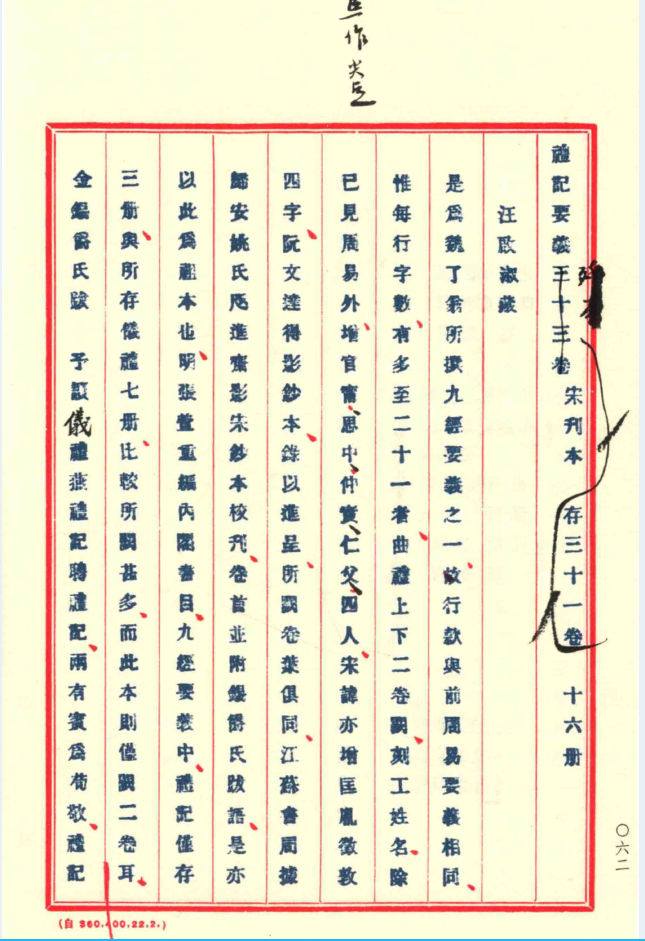 作
禮記要義三十三卷 宋刊本 存三十一卷 十六册
殘本
汪啟淑藏
是爲魏了翁所撰九經要義之一故行款與前周易要義相同
惟每行字數有多至二十一者曲禮上下二卷闕刻工姓名除
已見周易外增官甯思中仲實仁父四人宋諱亦增匡胤徵敦
四字阮文達得影鈔本錄以進呈所闕卷葉俱同江蘇書局據
歸安姚氏咫進齋影宋鈔本校刊卷首並附銀爵氏跋語是亦
以此爲祖本也明張萱重編內閣書目九經要義中禮記僅存
三册與所存儀禮七册比較所闕甚多而此本則僅闕二卷耳
金銀爵氏跋 予讀儀禮燕禮記聘禮記兩有賓爲苟敬禮記
(自 360.400.22.2.)
〇六二